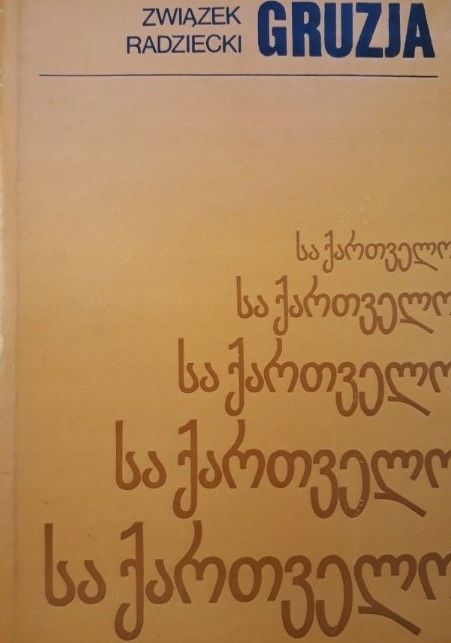 ZWIĄZEK
RADZIECKI
GRUZJA
საქართველო
საქართველო
საქართველო
საქართველო
საქართველო